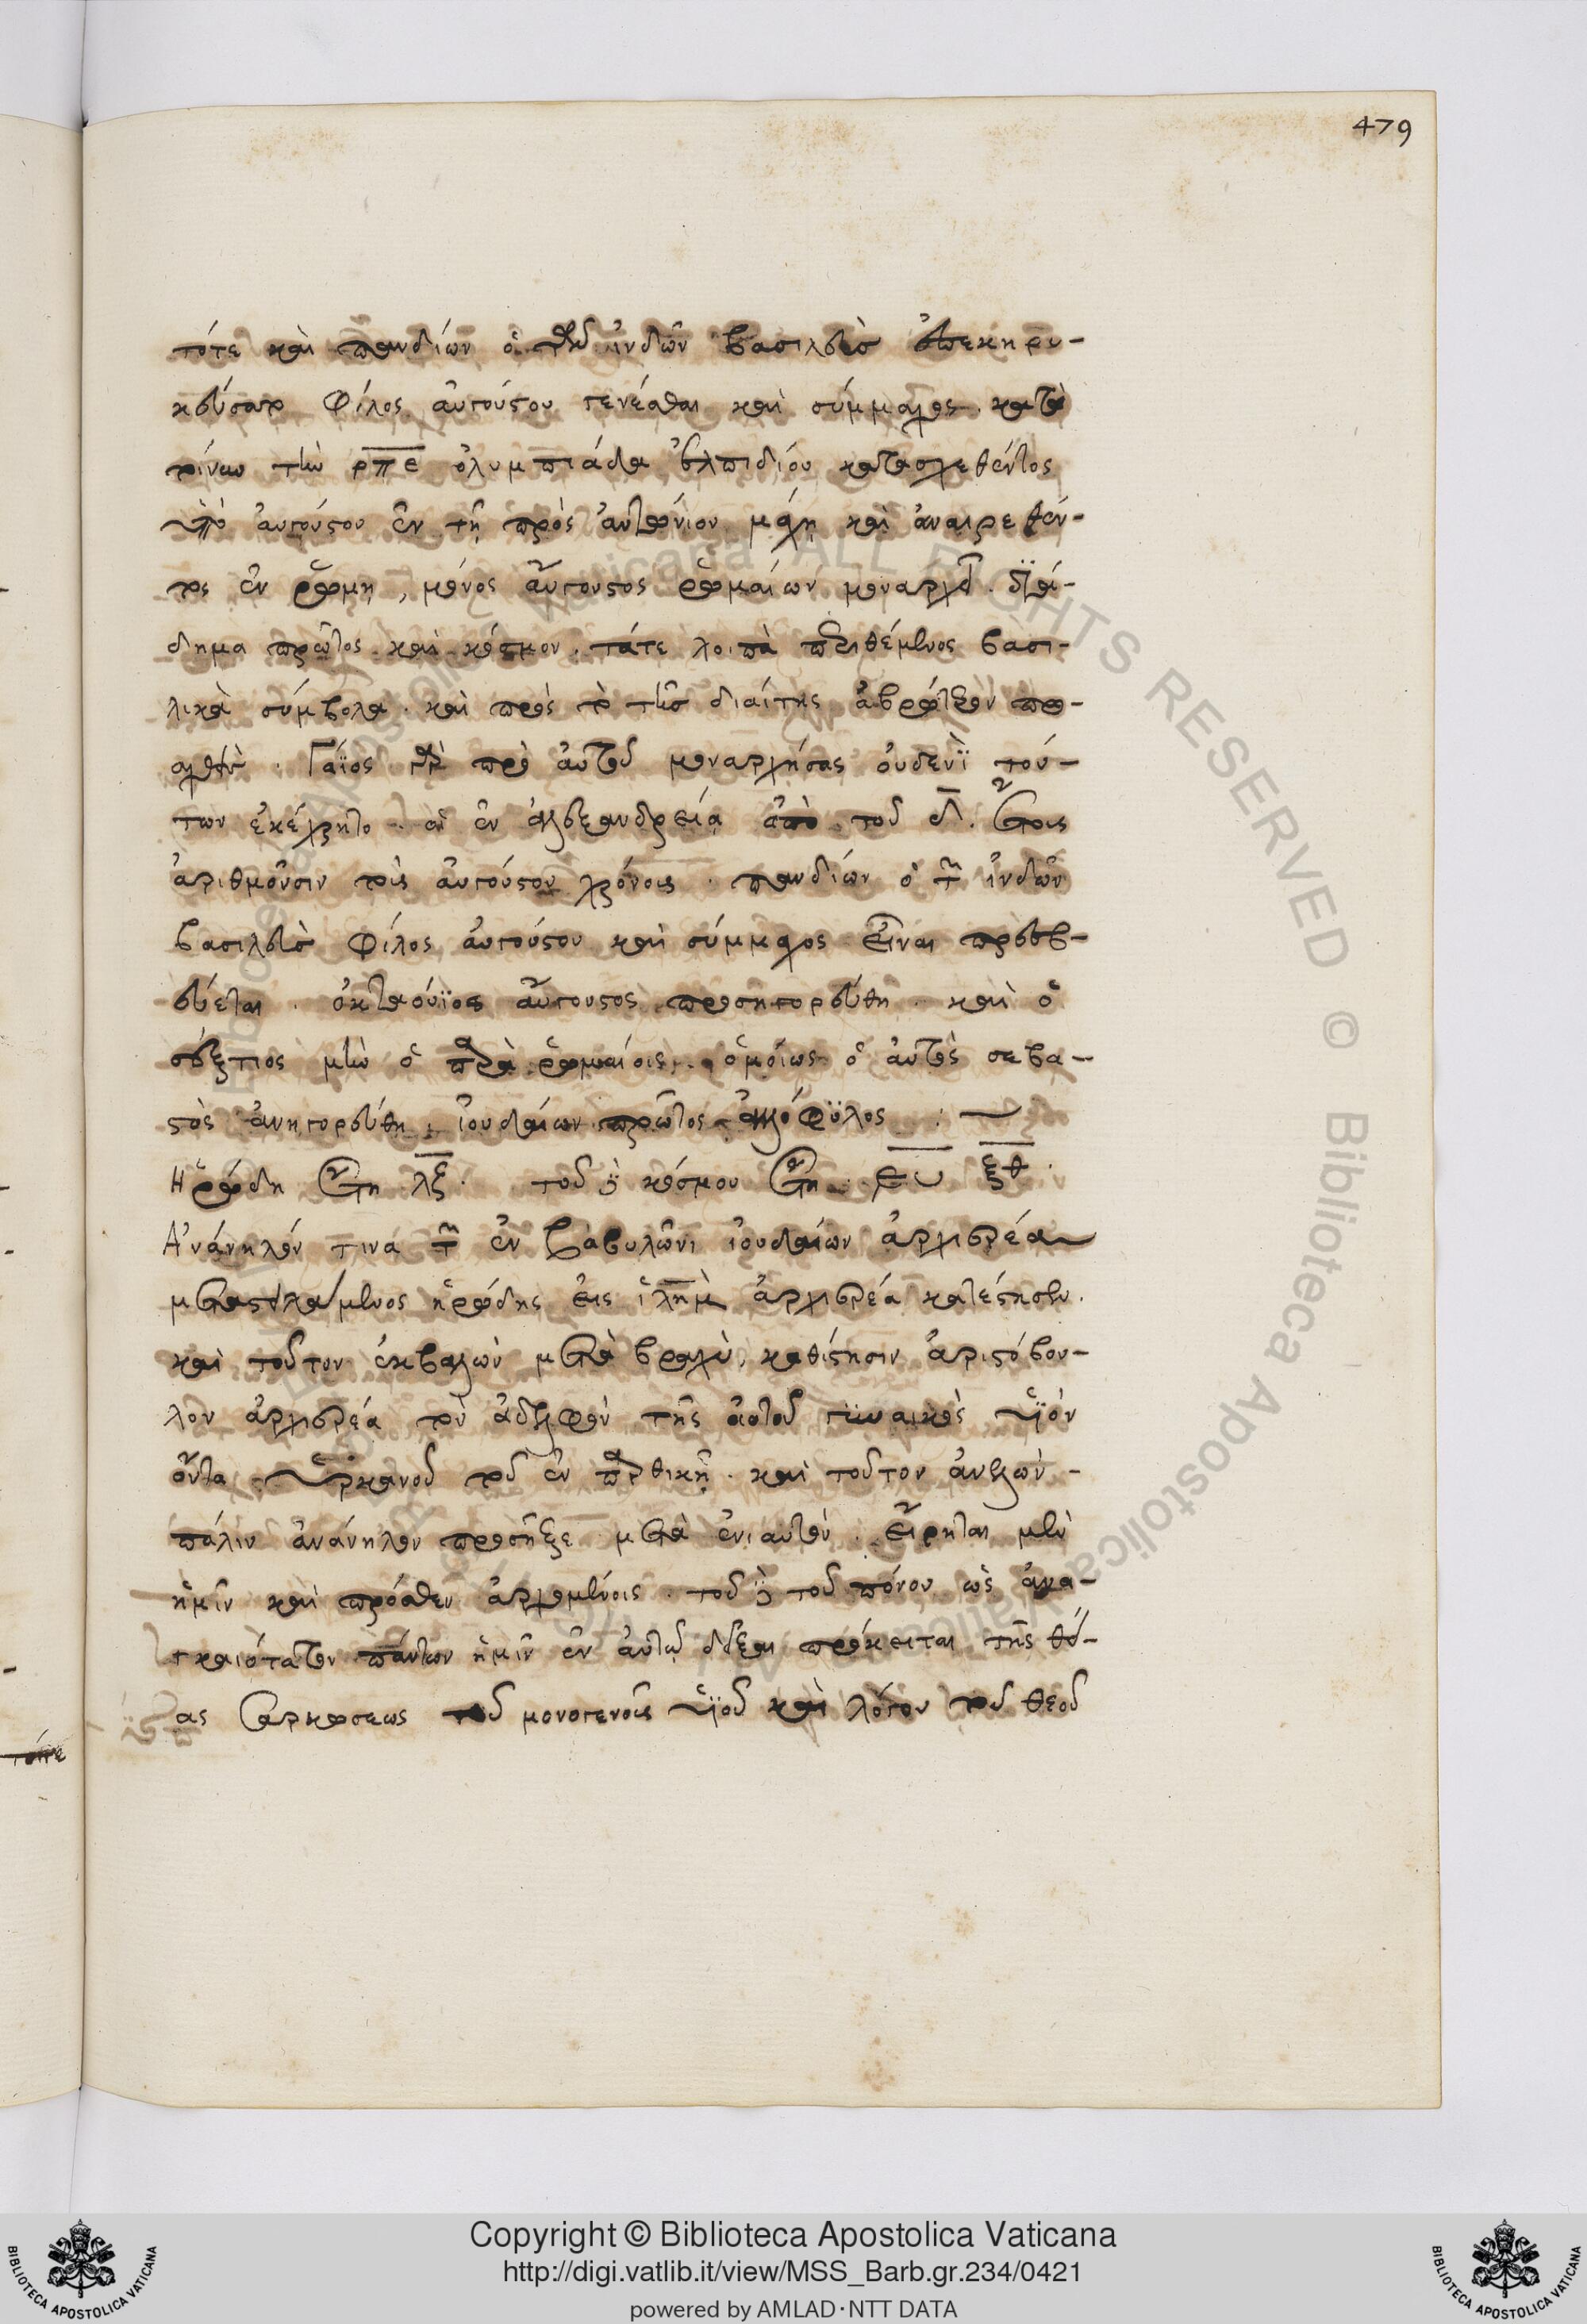 479
τότε καὶ πανδίων ὁ τῶν ἰνδῶν βασιλεὺς ἐπεκηρυ-
κεύσατο φίλος αὐγούστου γενέσθαι καὶ σύμμαχος. κατὰ
τὴν ρπε ὀλυμπιάδα
ὑπὸ αὐγούστου ἐν τῇ πρὸς ἀντώνιον μάχῃ καὶ ἀναιρεθέν-
τος ἐν ῥώμῃ, μόνος αὔγουστος ῥωμαίων μοναρχεῖ. διά-
δημα πρῶτος καὶ κόσμον. τάτε λοιπὰ περιθέμενος βασι-
λικὰ σύμβολα. καὶ πρὸς τὸ τῆς διαίτης ἁβρότερον
Γάϊος γὰρ πρὸ αὐτοῦ μοναρχήσας οὐδενὶ τού-
των ἐκέχρητο. οἱ ἐν ἀλεξανδρείᾳ ἀπὸ τοῦ δ. ἔτους
ἀριθμοῦσιν τοὺς αὐγούστου χρόνους. πανδίων ὁ τ ἰνδῶν
βασιλεὺς φίλος αὐγούστου καὶ σύμμαχος εἶναι πρεσβ-
εύεται. ὀκταούϊος αὔγουστος προσηγορεύθη. καὶ ὁ
σεξτιος μὴν ὁ παρὰ ῥωμαίοις. ὁμοίως ὁ αὐτὸς σεβα-
στὸς ἀνηγορεύθη. ἰουδαίων πρῶτος ἀλλόφϋλος :
Ἡρώδη ἔτη λξ. τοῦ δὲ κόσμου ἔτη ευξθ.
Ἀνάνηλόν τινα τ ἐν βαβυλῶνι ἰουδαίων ἀρχιερέα
μεταστειλάμενος ἡρώδης εἰς ἱλημ ἀρχιερέα κατέστησεν.
καὶ τοῦτον ἐκβαλὼν μετὰ βραχὺ, καθίστησιν ἀριστόβου-
λον ἀρχιερέα τὸν ἀδελφὸν τῆς αὐτοῦ γυναικὸς υἱὸν
ὄντα ὑρκανοῦ τοῦ ἐν παρθικῇ. καὶ τοῦτον ἀνελὼν-
πάλιν ἀνάνηλον προσῆξε μετὰ ἐνιαυτόν. εἴρηται μὲν
ἡμῖν καὶ πρόσθεν ἀρχομένοις. τοῦ δὲ τοῦ πόνου ὡς ἀνα-
γκαιότατον πάντων ἡμῖν ἐν αὐτῷ δεῖξαι πρόκειται τῆς θεί-
ας σαρκώσεως τοῦ μονογενοῦς υἱοῦ καὶ λόγου τοῦ θεοῦ
Copyright © Biblioteca Apostolica Vaticana
http://digi.vatlib.it/view/MSS_Barb.gr.234/0421
powered by AMLAD·NTT DATA